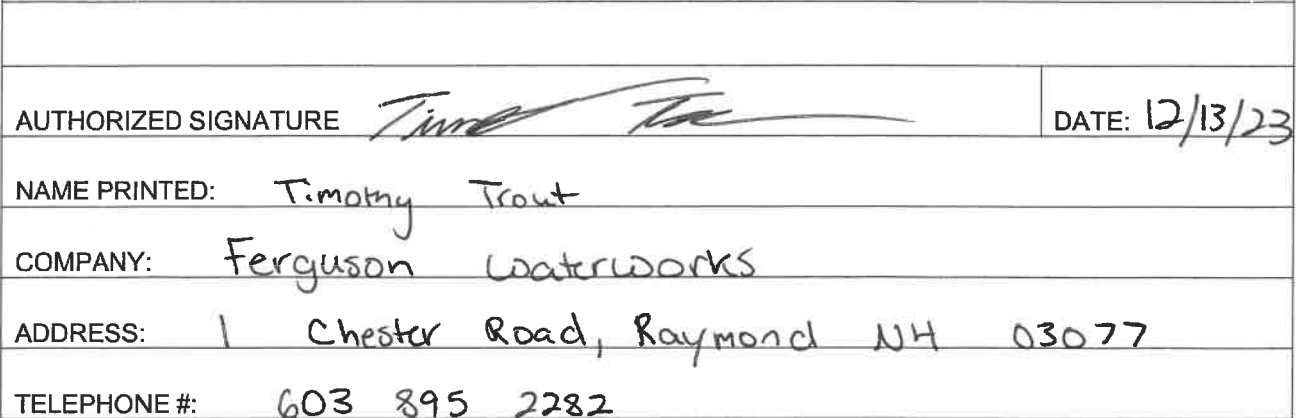 AUTHORIZED SIGNATURE Timothy Trout DATE: 12/13/23
NAME PRINTED: Timothy Trout
COMPANY: Ferguson Waterworks
ADDRESS: 1 Chester Road, Raymond NH 03077
TELEPHONE #: 603 895 2282